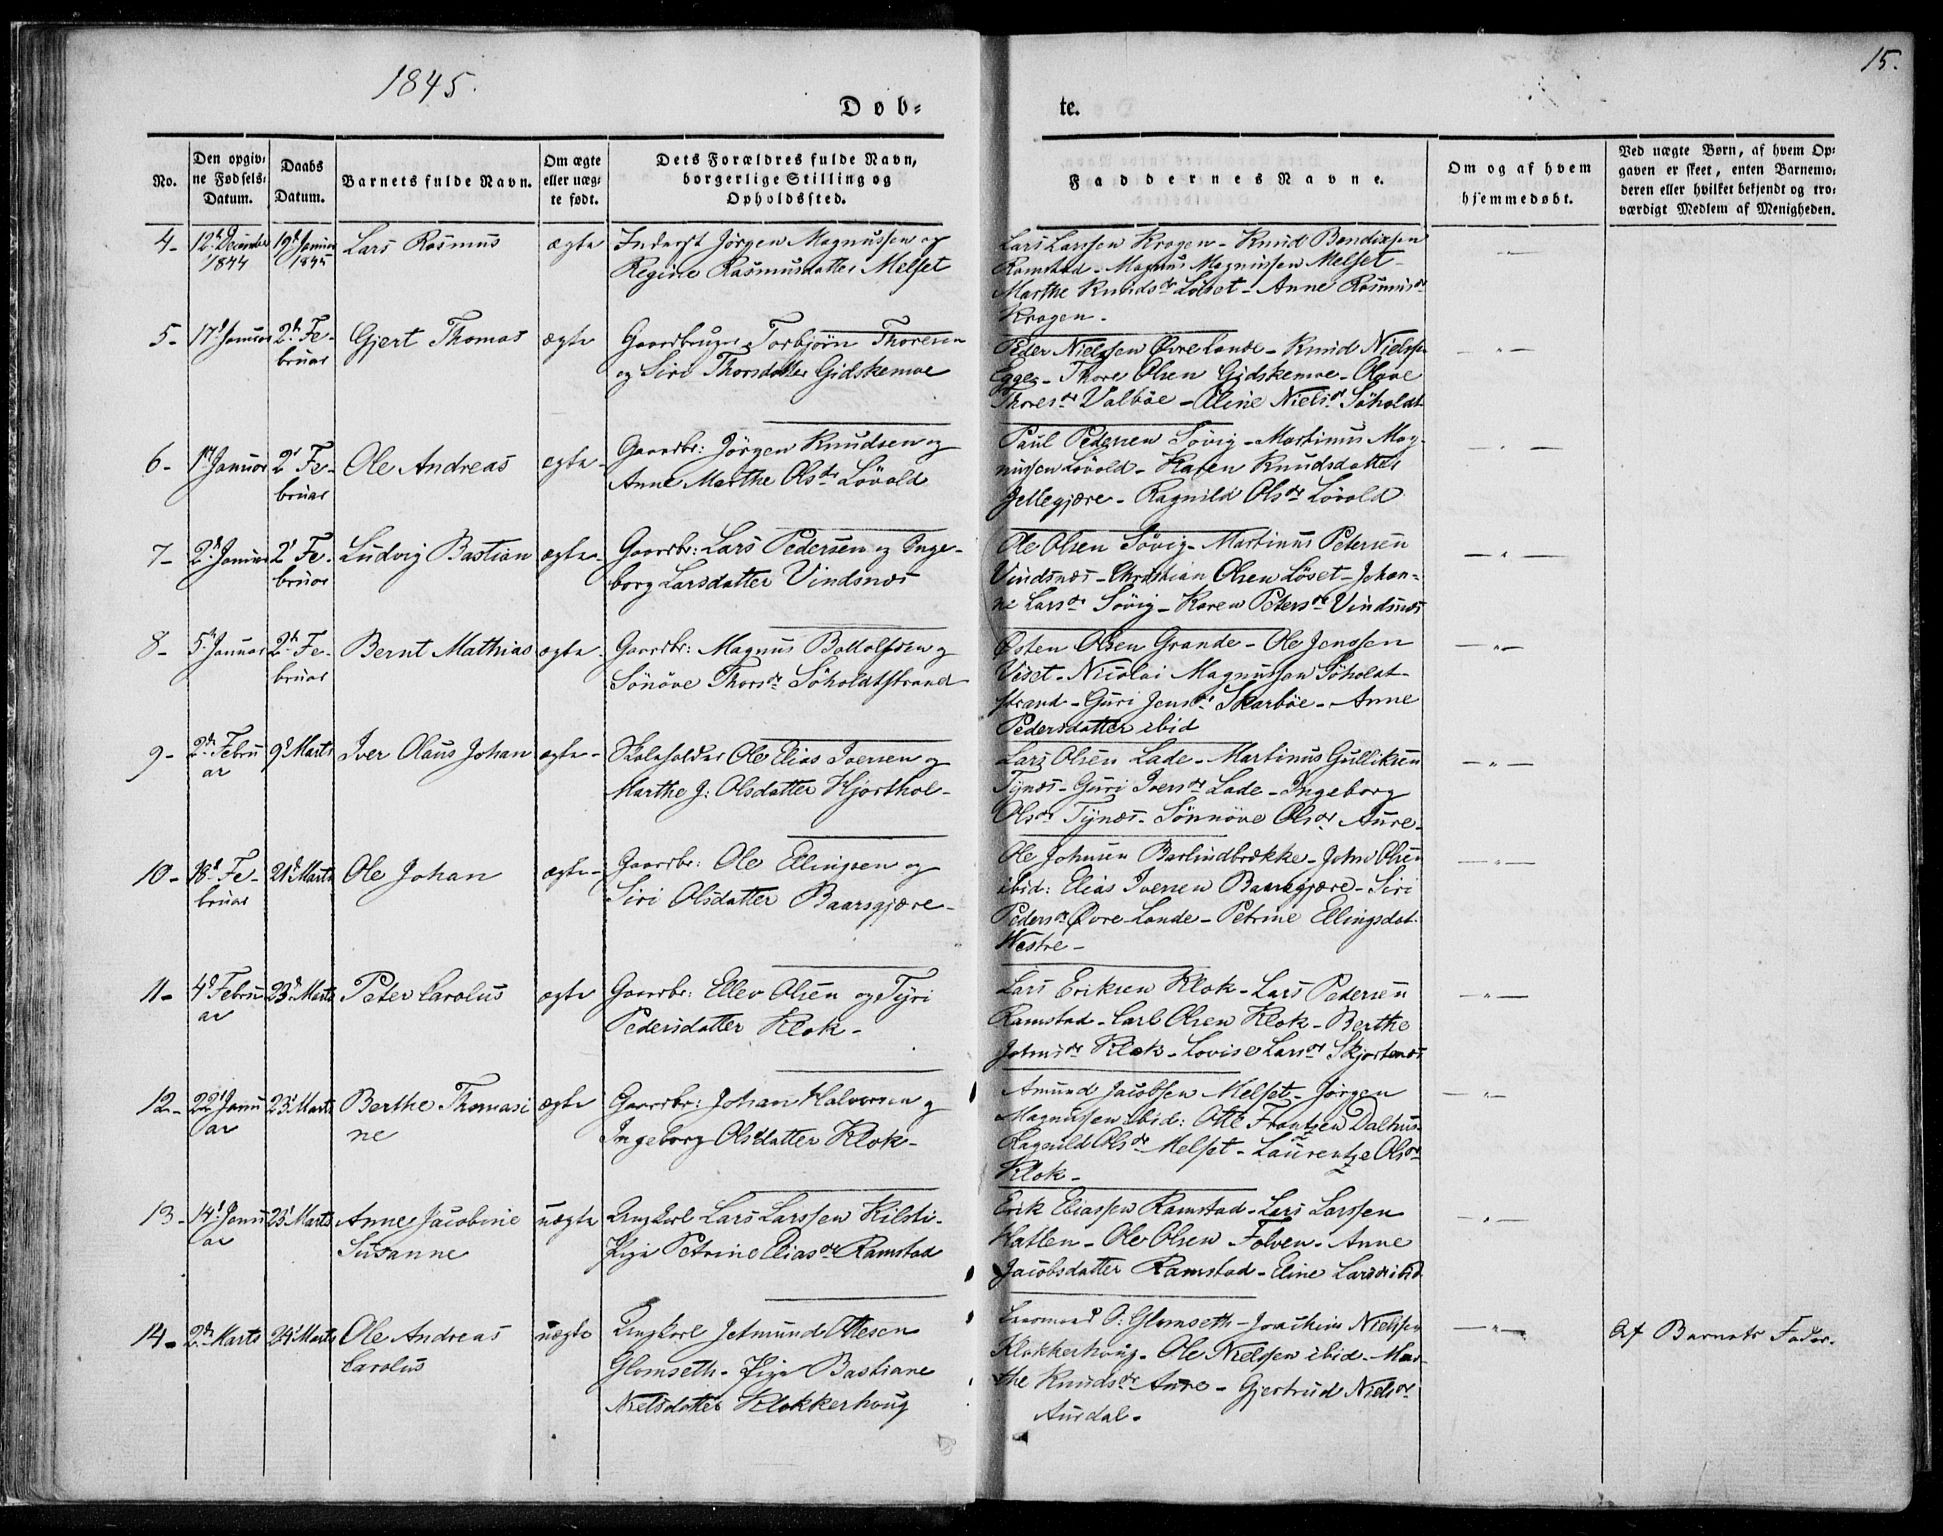 1845.
15.
Døb-
te.
No.
Den opgiv-
ne Fødsels-
Datum.
Daabs
Datum.
Barnets fulde Navn.
Om ægte
eller uæg-
te født.
Dets Forældres fulde Navn,
borgerlige Stilling og
Opholdssted.
Faddernes Navne.
Om og af hvem
hjemmedøbt.
Ved uægte Børn, af hvem Op-
gaven er skeet, enten Barnemo-
deren eller hvilket bekjendt og tro-
værdigt Medlem af Menigheden.
4- 12te December 19de Januar Lars Rasmus ægte Inderst Jørgen Magnussen og
1844 1845 Regine Rasmusdatter Melset
Lars Larssen Krogen - Knud Bendixsen
Ramstad - Magnus Magnussen Melset -
Marthe Knudsdr Løset - Anne Rasmusdr
Krogen. -
5- 17de Januar 2den Fe- Gjert Thomas ægte Gaardbruger Torbjørn Thoresen
bruar og Siri Thorsdatter Gidskemoe
Peder Nielssen Øvre Lande - Knud Nielssen
Egge - Thore Olsen Gidskemoe - Olave
Thoresdr Valbøe - Eline Nielsdr Søholdt
6- 1ste Januar 2den Fe- Ole Andreas ægte Gaardbr: Jørgen Knudsen og
bruar Anne Marthe Olsdr Løvold
Paul Pedersen Søvig - Martinus Mag-
nussen Løvold - Karen Knudsdatter
Jellegjære - Ragnild Olsdr Løvold
7- 2den Januar 2den Fe- Ludvig Bastian ægte Gaardbr: Lars Pedersen og Inge-
bruar borg Larsdatter Vindsnæs
Ole Olsen Søvig - Martinus Petersen
Vindsnæs - Christian Olsen Løset - Johan-
ne Larsdr Søvig - Karen Petersdr Vindsnæs
8- 5te Januar 2den Fe- Bernt Mathias ægte Gaardbr: Magnus Bottolfsen og
bruar Sønøve Thorsdr Søholdtstrand
Østen Olsen Grande - Ole Jenssen
Viset - Nicolai Magnussen Søholdt-
strand - Guri Jensdr Skarbøe - Anne
Pedersdatter ibid
9- 2den Febru 9de Marts Iver Olaus Johan ægte Skoleholder Ole Elias Iversen og
ar Marthe J: Olsdatter Hjorthol-
Lars Olsen Lade - Martinus Gulliksen
Tynæs - Guri Iversdr Lade - Ingeborg
Olsdr Tynæs - Sønnøve Olsdr Aure -
10- 18de Fe- 21de Marts Ole Johan ægte Gaardbr: Ole Ellingsen og
bruar Siri Olsdatter Baarsgjære -
Ole Johnsen Barlindbrække - John Olsen
ibid: Elias Iversen Baarsgjære - Siri
Pedersdr Øvre Lande - Petrine Ellingsdat.
Westre -
11- 4de Febru 23de Marts Peter Carolus ægte Gaardbr: Ellev Olsen og Tyri
ar Pedersdatter Klok -
Lars Eriksen Klok - Lars Pedersen
Ramstad - Carl Olsen Klok - Berthe
Johnsdr Klok - Lovise Larsdr Skjortenæs
12- 22de Janu 23de Marts Berthe Thomasi ægte Gaardbr: Johan Halvorsen og
ar ne Ingeborg Olsdatter Klok -
Amund Jacobsen Melset - Jørgen
Magnussen ibid: Otte Frantzen Dalhus
Ragnild Olsdr Melset - Laurentze Olsdr
Klok -
13- 14de Janu 23de Marts Anne Jacobine uægte Ungkarl Lars Larssen Kilsti-
ar Susanne Pige Petrine Eliasdr Ramstad
Erik Eliassen Ramstad - Lars Larssen
Hatlen - Ole Olsen Folven - Anne
Jacobsdatter Ramstad - Eline Larsdr ibid
14- 2den Marts 24de Marts Ole Andreas uægte Ungkarl Jetmund Ottesen
Carolus Glomseth - Pige Bastiane
Nielsdatter Klokkerhoug
O: Glomseth - Joachim Nielssen
Klokkerhoug - Ole Nielssen ibid - Mar-
the Knudsdr Aure - Gjertrud Nielsdr
Aurdal.
Af Barnets Fader.